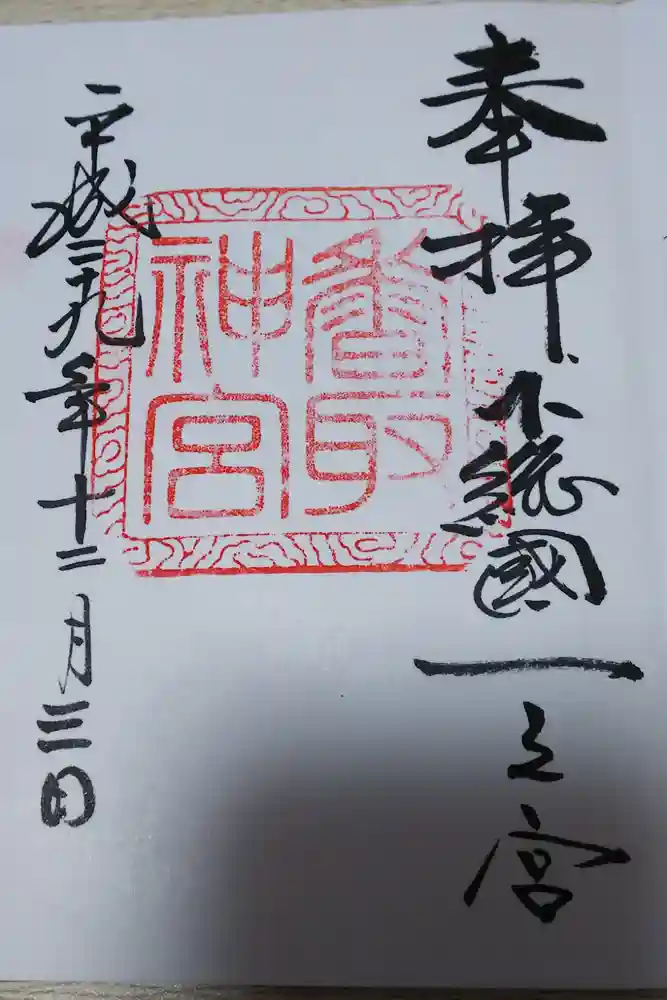 奉拝 下総國一之宮
香取
神宮
平成二十九年十二月三日